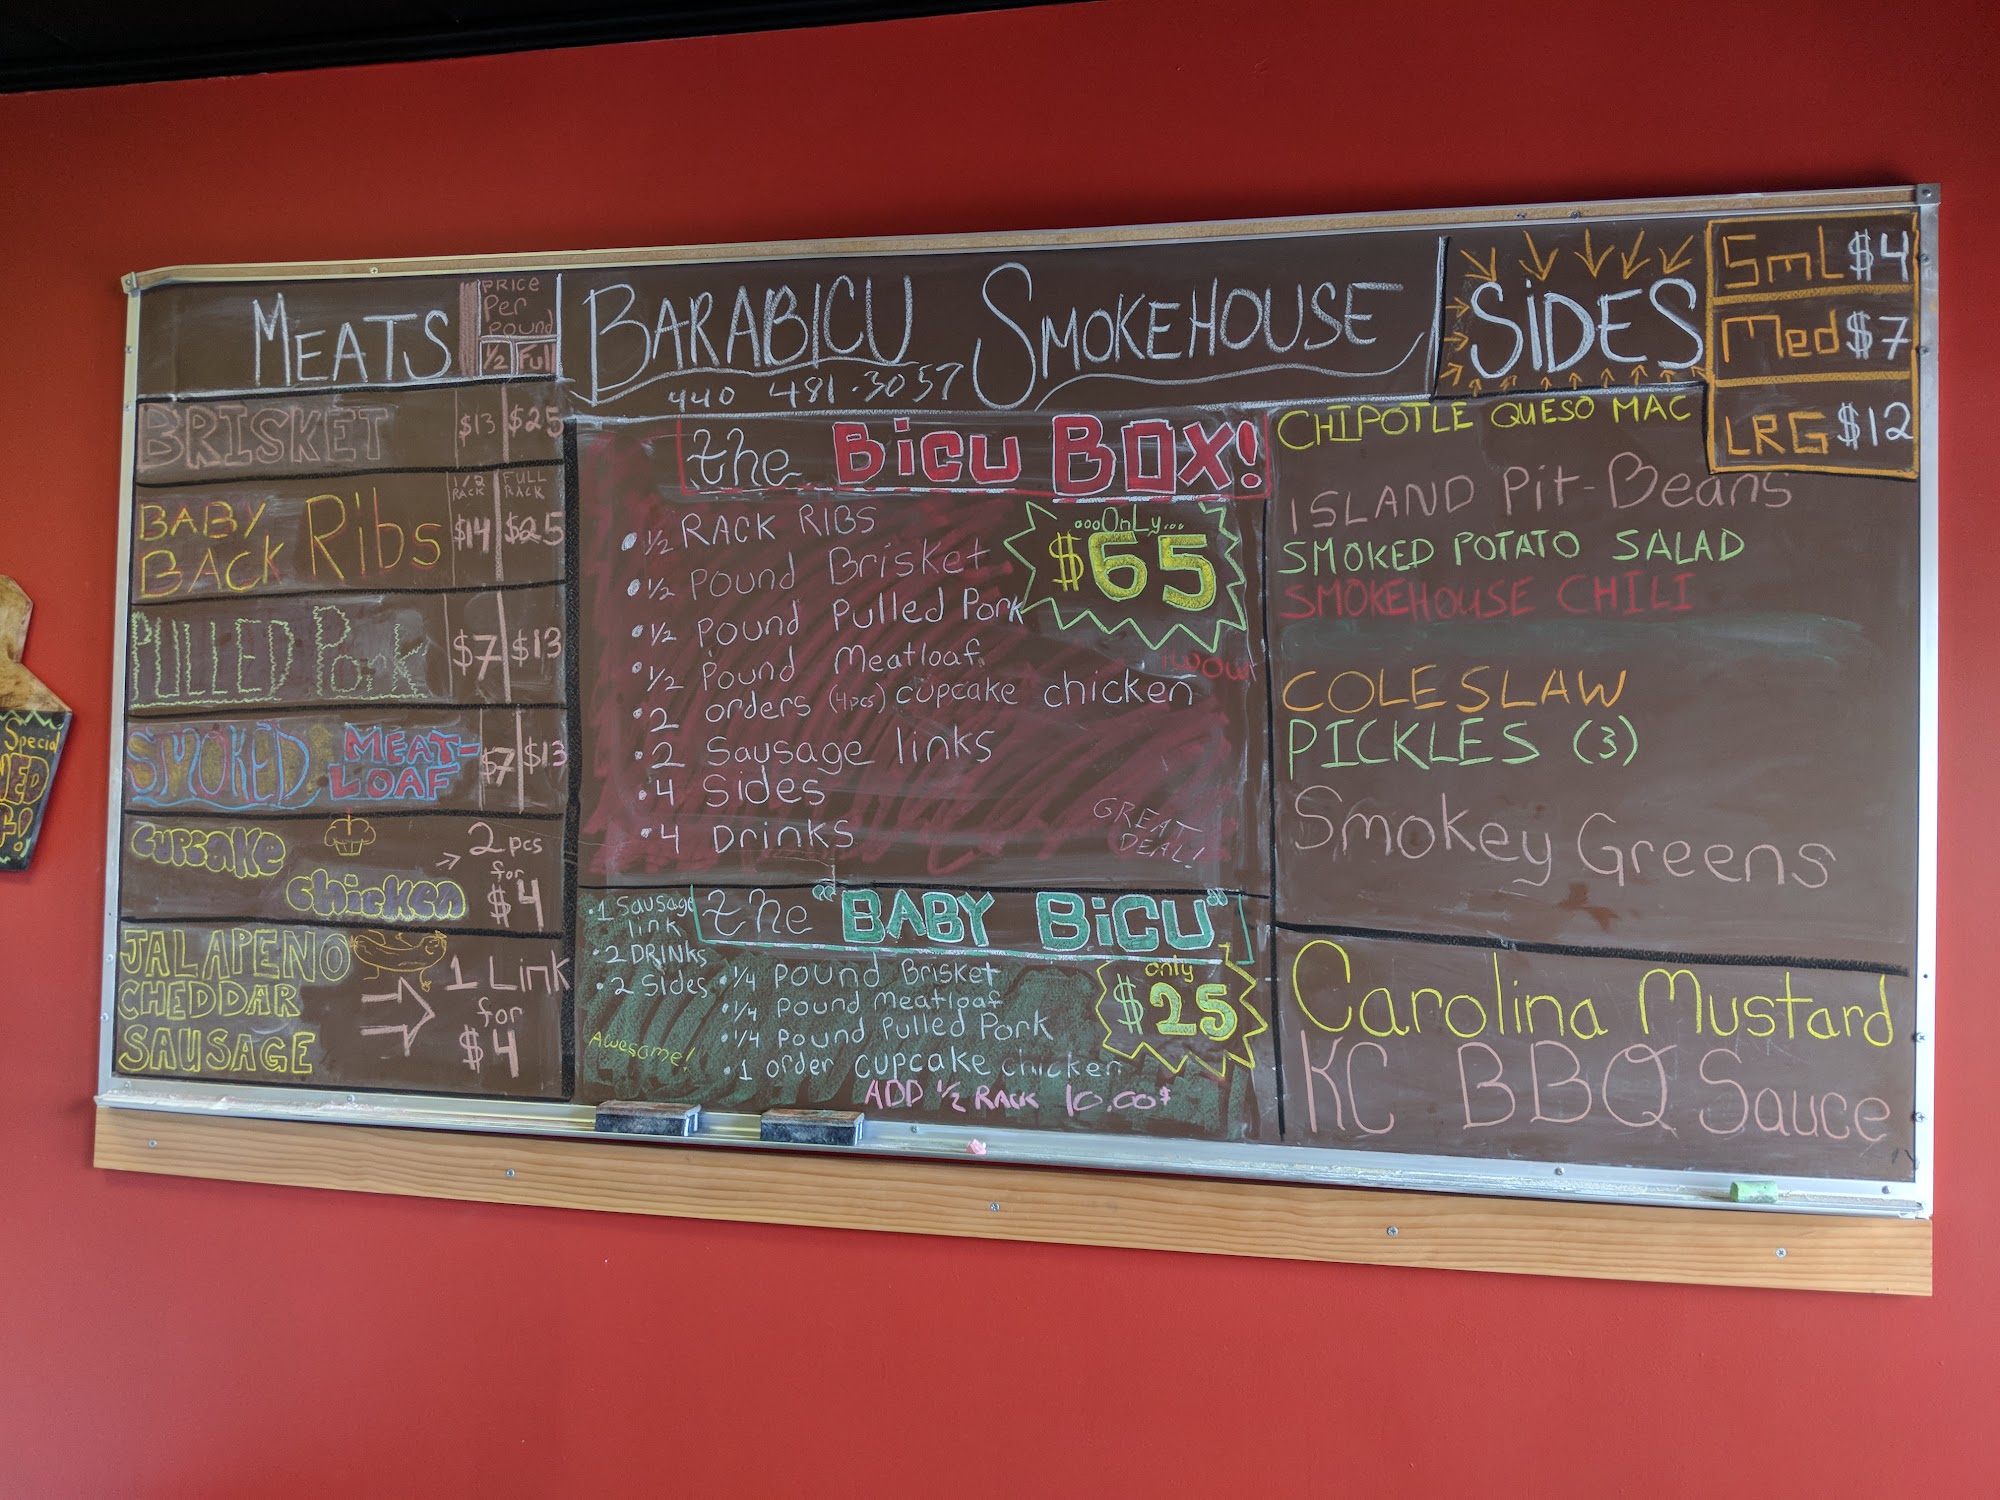 MEATS
PRICE
Per
Pound
1/2 Full
BRISKET $13 $25
1/2 RACK FULL RACK
BABY
BACK Ribs $14 $25
PULLED Pork $7 $13
SMOKED MEAT-
LOAF $7 $13
cupcake
chicken
2 pcs
for
$4
JALAPENO
CHEDDAR
SAUSAGE
1 Link
for
$4
BARABICU SMOKEHOUSE
440 481-3057
the BiCU BOX!
...OnLy...
$65
• 1/2 RACK RIBS
• 1/2 Pound Brisket
• 1/2 Pound Pulled Pork
• 1/2 Pound Meatloaf
WOW
• 2 orders (4pcs) cupcake chicken
• 2 Sausage links
• 4 Sides
• 4 Drinks
GREAT
DEAL!
the "BABY BiCU"
• 1 Sausage
link
• 2 DRINKS
• 2 Sides
Awesome!
• 1/4 Pound Brisket
• 1/4 Pound Meatloaf
• 1/4 Pound Pulled Pork
• 1 order cupcake chicken
only
$25
ADD 1/2 RACK 10.00$
SiDES
SmL $4
Med $7
LRG $12
CHIPOTLE QUESO MAC
ISLAND Pit-Beans
SMOKED POTATO SALAD
SMOKEHOUSE CHILI
COLESLAW
PICKLES (3)
Smokey Greens
Carolina Mustard
KC BBQ Sauce
Special